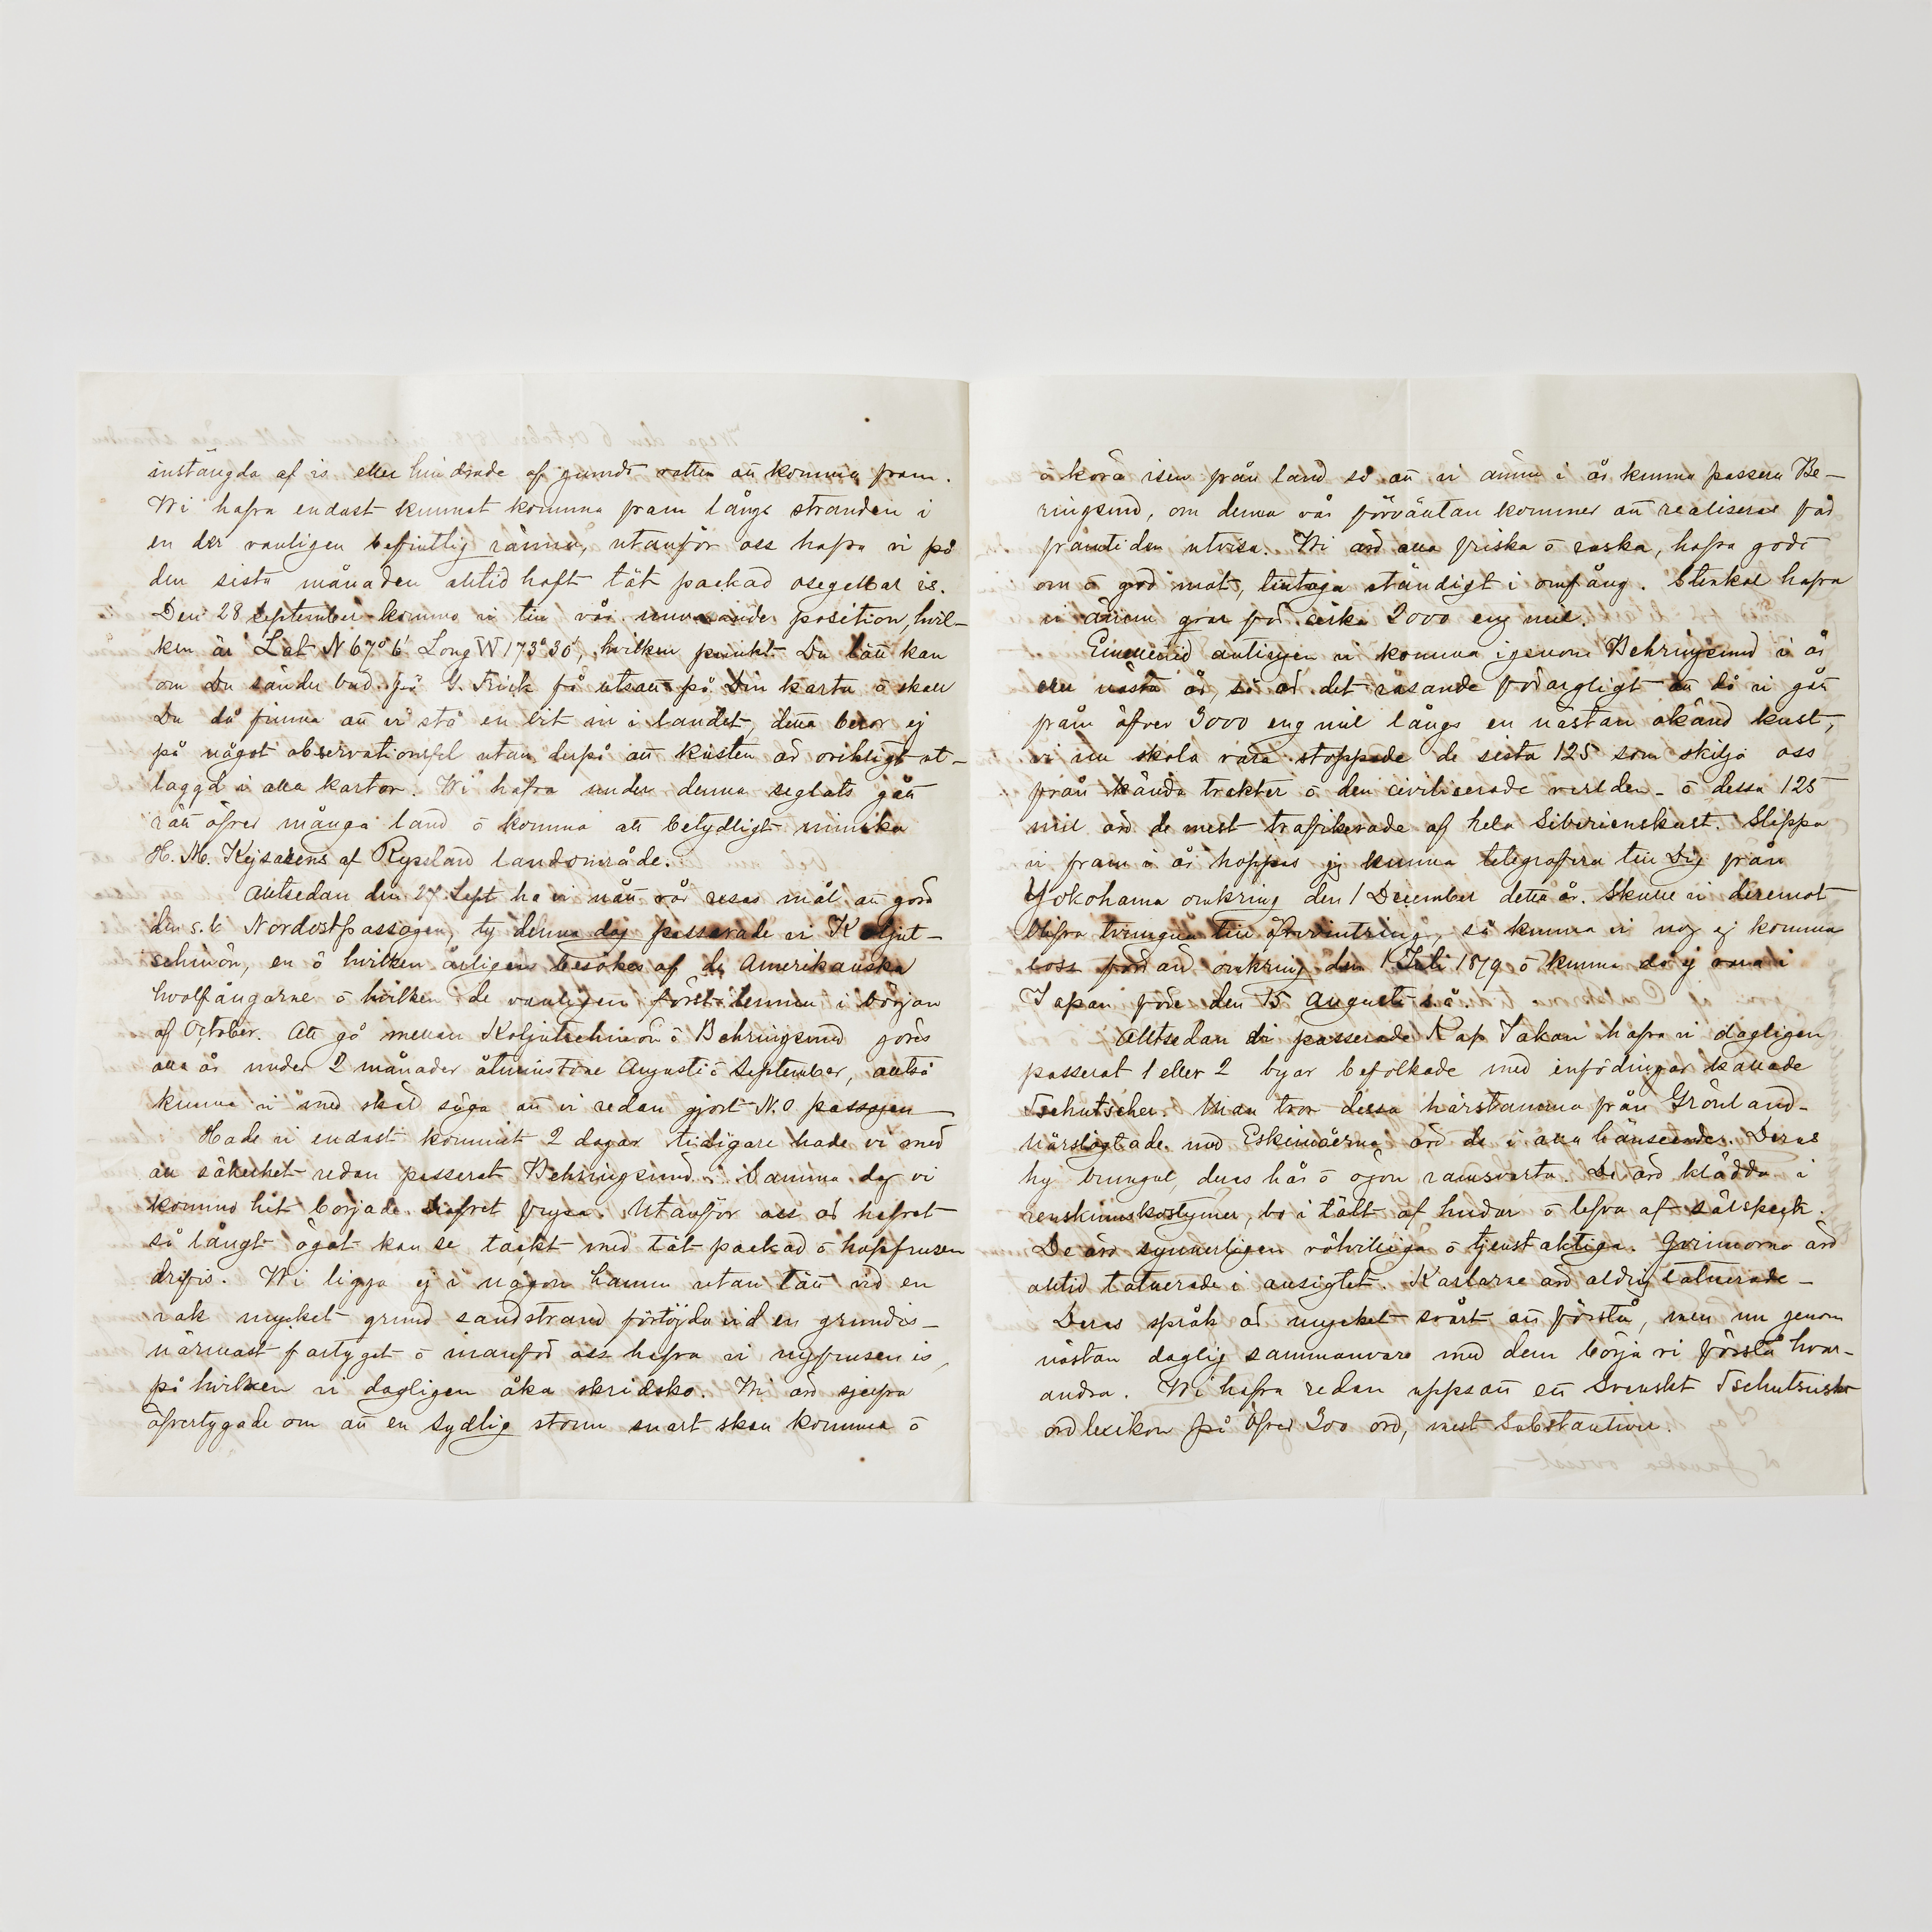 instängda af is eller hindrade af grundt vatten att komma fram.
Wi hafva endast kunnat komma fram långs stranden i
en der vanligen befintlig ränna, utanför oss hafva vi på
den sista månaden alltid haft tät packad osegelbar is.
Den 28 September kommo vi till vår nuvarande position, hvil-
ken är Lat N 67°6' Long W 173°30', hvilken punkt Du lätt kan
om Du sänder bud på G. Frick få utsatt på Din karta ō skall
Du då finna att vi stå en bit in i landet, detta beror ej
på något observationsfel utan derpå att kusten är oriktigt ut-
laggd i alla kartor. Wi hafva under denna seglats gått
rätt öfver många land ō komma att betydligt minska
H. M. Kejsarens af Ryssland landområde.
Alltsedan den 27 Sept ha vi nått vår resas mål att göra
den s.k. Nordostpassagen, ty denna dag passerade vi Koljut-
schinön, en ö hvilken årligen besökes af de Amerikanska
hvalfångarne ō hvilken de vanligen först lemna i början
af October. Att gå mellan Koljutschinön ō Behringsund görs
alla år under 2 månader åtminstone Augusti ō September, alltså
kunna vi med skäl säga att vi redan gjort N.O passagen
Hade vi endast kommit 2 dagar tidigare hade vi med
all säkerhet redan passerat Behringsund. Samma dag vi
kommo hit började Hafvet frysa. Utanför oss är hafvet
så långt ögat kan se täckt med tät packad ō hopfrusen
drifis. Wi ligga ej i någon hamn utan tätt vid en
rak mycket grund sandstrand förtöjda vid en grundis-
närmast fartyget ō innanför oss hafva vi nyfrusen is,
på hvilken vi dagligen åka skridsko. Wi äro sjelfva
öfvertygade om att en sydlig storm snart skall komma ō
ō köra isen från land så att vi ännu i år kunna passera Be-
ringsund, om denna vår förväntan kommer att realiseras får
framtiden utvisa. Wi äro alla friska ō raska, hafva godt
om ō god mat, tilltaga ständigt i omfång. Stenkol hafva
vi ännu qvar för cirka 2000 eng mil.
Emellertid antingen vi komma igenom Behringsund i år
eller nästa år, så är det rasande förargligt att då vi gått
fram öfver 3000 eng mil långs en nästan okänd kust,
vi nu skola vara stoppade de sista 125 som skilja oss
från kända trakter ō den civiliserade verlden - ō dessa 125
mil äro de mest trafikerade af hela Siberienskust. Slippa
vi fram i år hoppas jag kunna telegrafera till Dig från
Yokohama omkring den 1 December detta år. Skulle vi deremot
blifva tvungna till öfvervintring, så kunna vi nog ej komma
loss förr än omkring den 1 Juli 1879 ō kunna då ej vara i
Japan före den 15 Augusti s.å.
Alltsedan vi passerade Kap Jakan hafva vi dagligen
passerat 1 eller 2 byar befolkade med infödingar kallade
Tschutscher. Man tror dessa härstamma från Grönland-
närslägtade med Eskimåerna äro de i alla hänseender. Deras
hy brungul, deras hår ō ögon ramsvarta. De äro klädda i
renskinnskostymer, bo i tält af hudar ō lefva af sälspeck.
De äro synnerligen välvilliga ō tjenstaktiga. Qvinnorna äro
alltid tatuerade i ansigtet. Karlarne äro aldrig tatuerade-
Deras språk är mycket svårt att förstå, men nu genom
nästan daglig sammanvaro med dem börja vi förstå hvar-
andra. Wi hafva redan uppsatt ett Svenskt Tschutsiskt
ordlexikon på öfver 300 ord, mest Substantiver.